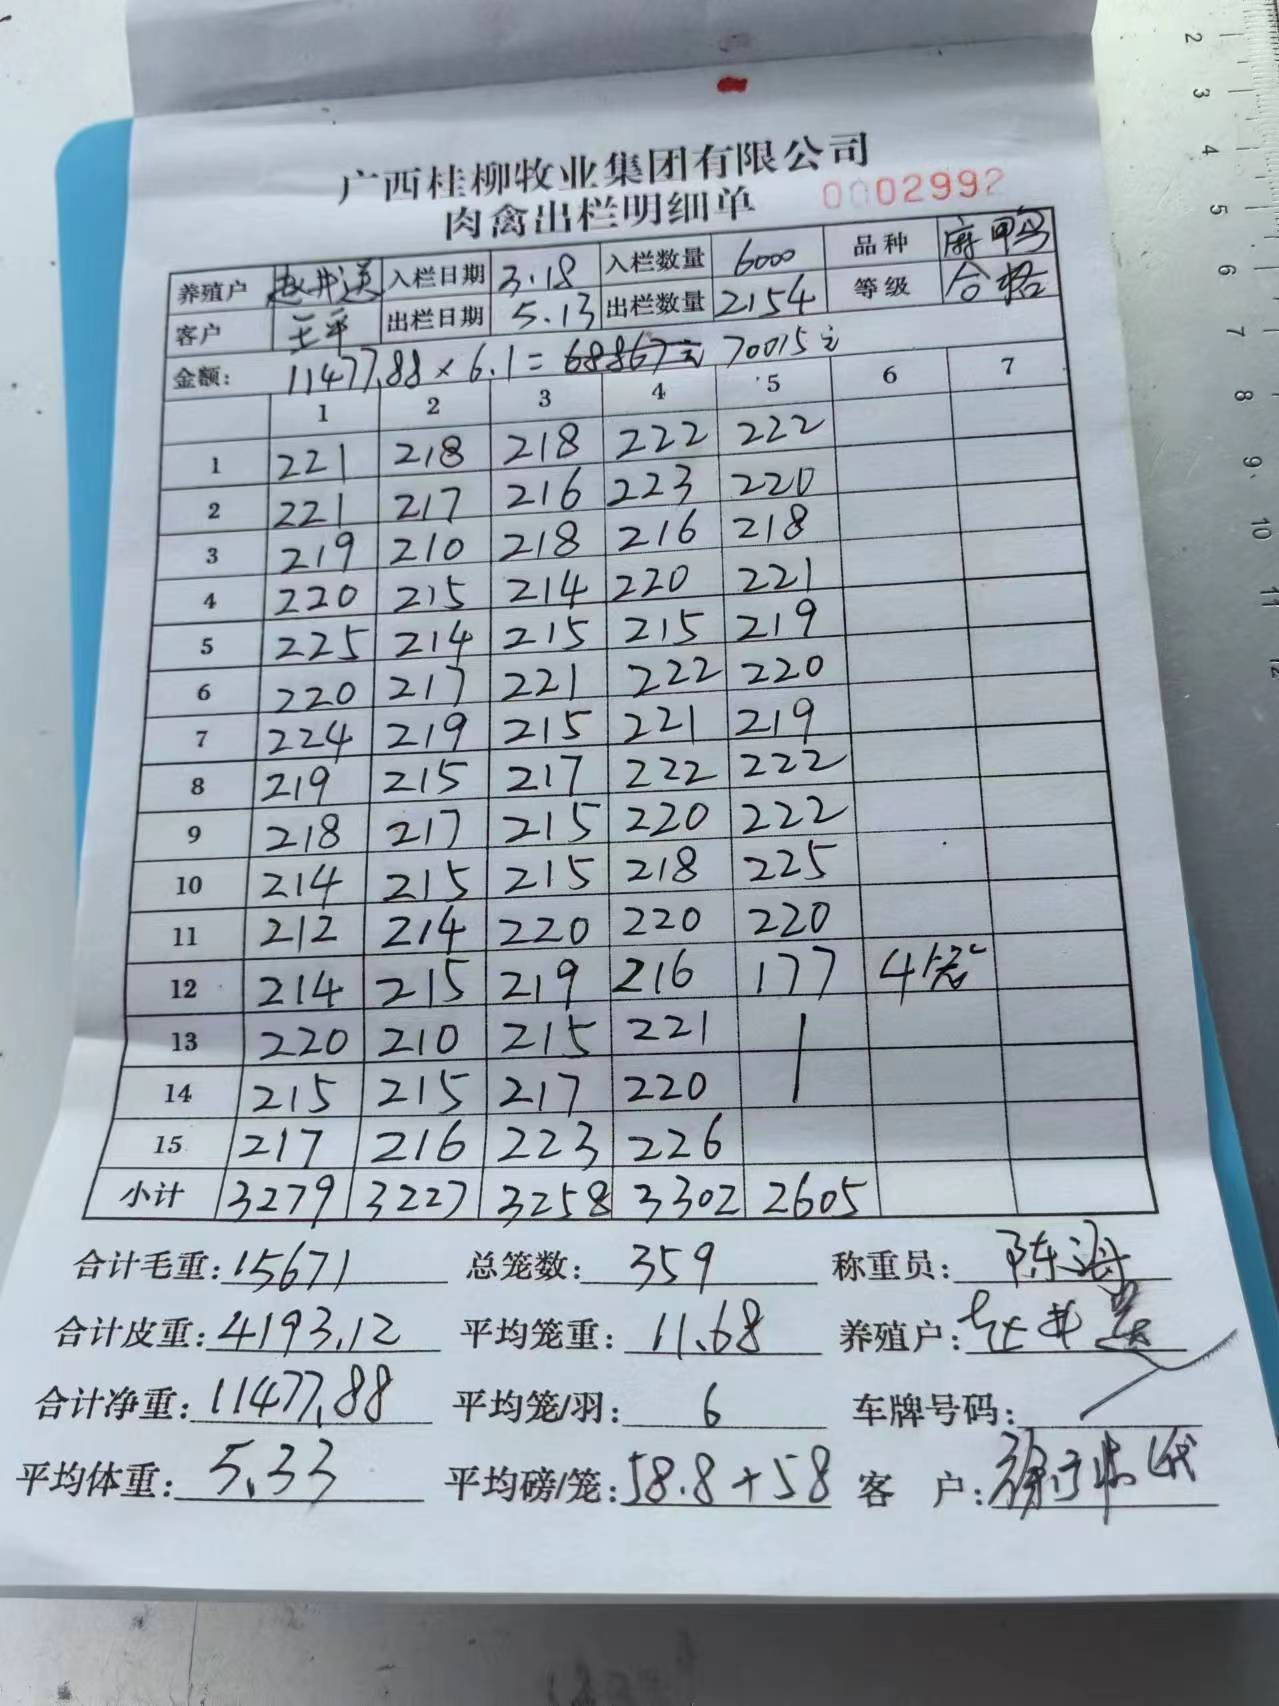 广西桂柳牧业集团有限公司
肉禽出栏明细单 0002992
养殖户 赵井送 入栏日期 3.18 入栏数量 6000 品种 麻鸭
客户 王平 出栏日期 5.13 出栏数量 2154 等级 合格
金额: 11477.88 × 6.1 = 68867元 70015元
1 2 3 4 5 6 7
1 221 218 218 222 222
2 221 217 216 223 220
3 219 210 218 216 218
4 220 215 214 220 221
5 225 214 215 215 219
6 220 217 221 222 220
7 224 219 215 221 219
8 219 215 217 222 222
9 218 217 215 220 222
10 214 215 215 218 225
11 212 214 220 220 220
12 214 215 219 216 177 4笼
13 220 210 215 221
14 215 215 217 220
15 217 216 223 226
小计 3279 3227 3258 3302 2605
合计毛重: 15671 总笼数: 359 称重员: 陈海
合计皮重: 4193.12 平均笼重: 11.68 养殖户:
合计净重: 11477.88 平均笼/羽: 6 车牌号码:
平均体重: 5.33 平均磅/笼: 58.8+58 客户:
2
3
4
5
6
7
8
9
10
11
12